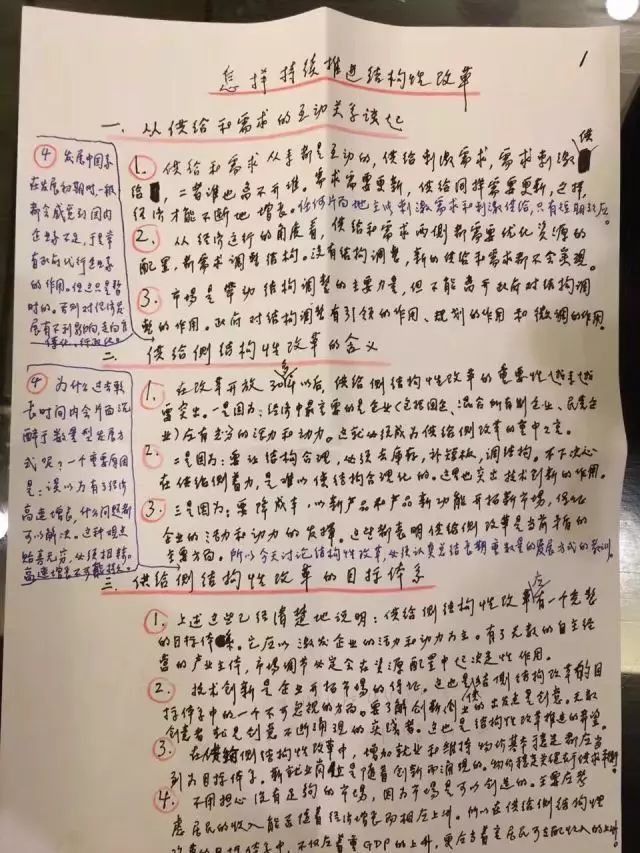 1
怎样持续推进结构性改革
一、从供给和需求的互动关系谈起
1. 供给和需求从来都是互动的,供给刺激需求,需求刺激供
给,二者谁也离不开谁。需求需要更新,供给同样需要更新,这样,
经济才能不断地增长。任何片面地主张刺激需求和刺激供给,只有短期效应。
2. 从经济运行的角度看,供给和需求两侧都需要优化资源的
配置,都需求调整结构。没有结构调整,新的供给和需求都不会实现。
3. 市场是带动结构调整的主要力量,但不能离开政府对结构调
整的作用。政府对结构调整有引领的作用、规划的作用和微调的作用。
④ 发展中国家
在发展初期时,一般
都会感觉到国内
企业家不足,于是常
有政府代行企业家
的作用。但这只是暂
时的。否则对经济发
展有不利影响,走向官
僚化、行政化。
二、供给侧结构性改革的含义
1. 在改革开放30多年以后,供给侧结构性改革的重要性越来越
要突出。一是因为:经济中最重要的是企业(包括国企、混合所有制企业、民营企
业)应有充分的活力和动力。这就必须成为供给侧改革的重中之重。
2. 二是因为:要让结构合理,必须去库存,补短板,调结构。不下决心
在供给侧着力,是难以使结构合理化的。这里也突出技术创新的作用。
3. 三是因为:要降成本,以新产品和产品新功能开拓新市场,保证
企业的活力和动力的发挥。这些都表明供给侧改革是当前主有的
主要方面。所以今天讨论结构性改革,必须认真总结长期重数量的发展方式的教训。
④ 为什么过去较
长时间内会片面沉
醉于数量型发展方
式呢?一个重要原因
是:误以为有了经济
高速增长,什么问题都
可以解决。这种观点
贻害无穷,必须扭转。
高速增长不可能持久。
三、供给侧结构性改革的目标体系
1. 上述这些已经清楚地说明:供给侧结构性改革应有一个完整
的目标体系。它应以激发企业的活力和动力为主。有了无数的自主经
营的产业主体,市场调节必定会在资源配置中起决定性作用。
2. 技术创新是企业开拓市场的保证,这也是供给侧结构改革的目
标体系中的一个不可忽视的方面。要了解创新创业的出发点是创意。无数
创意者就是创意不断涌现的实践者。这也是结构性改革推进的希望。
3. 在供给侧结构性改革中,增加就业和维持物价基本稳定都应当
列为目标体系。新就业岗位是随着创新而涌现的。物价稳定实现在于供求平衡
4. 不用担心没有足够的市场,因为市场是可以创造的。主要应考
虑居民的收入能否随着经济增长而相应上升。所以在供给侧结构性
改革的目标体系中,不仅应着重GDP的上升,更应当着重居民可支配收入的上升